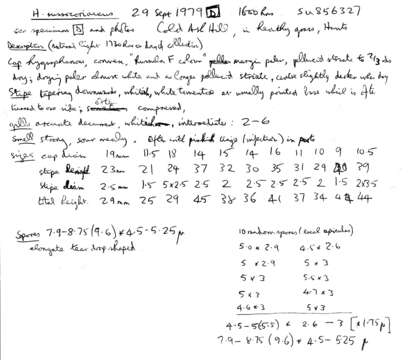 H. 29 Sept 1979 D 1600 hrs SU 856327
see specimen D and photos Cold Ash Hill, in Heathy grass, Hants
Description (natural light 1730 hrs day of collection)
Cap hygrophanous, convex, margin paler, pellucid striate to 2/3 when
dry, drying paler almost white and no longer pellucid striate, centre slightly darker when dry
Stipe tapering downwards, whitish, white tomentose at usually pointed base which is often
turned to one side; often compressed,
gills arcuate decurrent, whitish, interstitials: 2-6
Smell strong, sour mealy. Often with pinkish tinge (infection) in parts
Sizes cap diam 19mm 11.5 18 14 15 14 16 11 10 9 10.5
stipe length 23mm 21 24 37 32 30 35 31 29 39
stipe diam 2.5mm 1.5 5x2.5 2.5 2 2.5 2.5 2.5 2 1.5
total height 29mm 25 29 45 38 36 41 37 34 44
Spores 7.9-8.75 (9.6) x 4.5-5.25 µ
elongate tear drop shaped
10 random spores (
5.0 x 2.9 4.5 x 2.6
5 x 2.9 5 x 3
5 x 3 5.5 x 3
5 x 3 4.7 x 3
4.6 x 3 5 x 3
4.5-5 (5.5) x 2.6-3 [x 1.75 µ
7.9-8.75 (9.6) x 4.5-5.25 µ